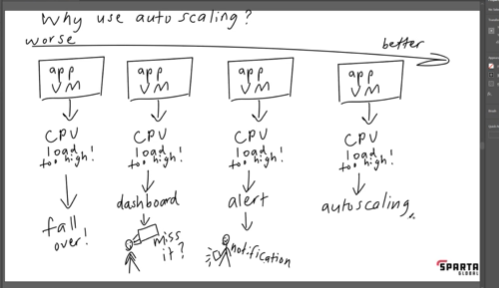 Why use auto scaling?
worse
better
app
VM
CPU
load
too high!
fall
over!
app
VM
CPU
load
too high!
dashboard
miss
it?
app
VM
CPU
load
too high!
alert
notification
app
VM
CPU
load
too high!
autoscaling
SPARTA
GLOBAL